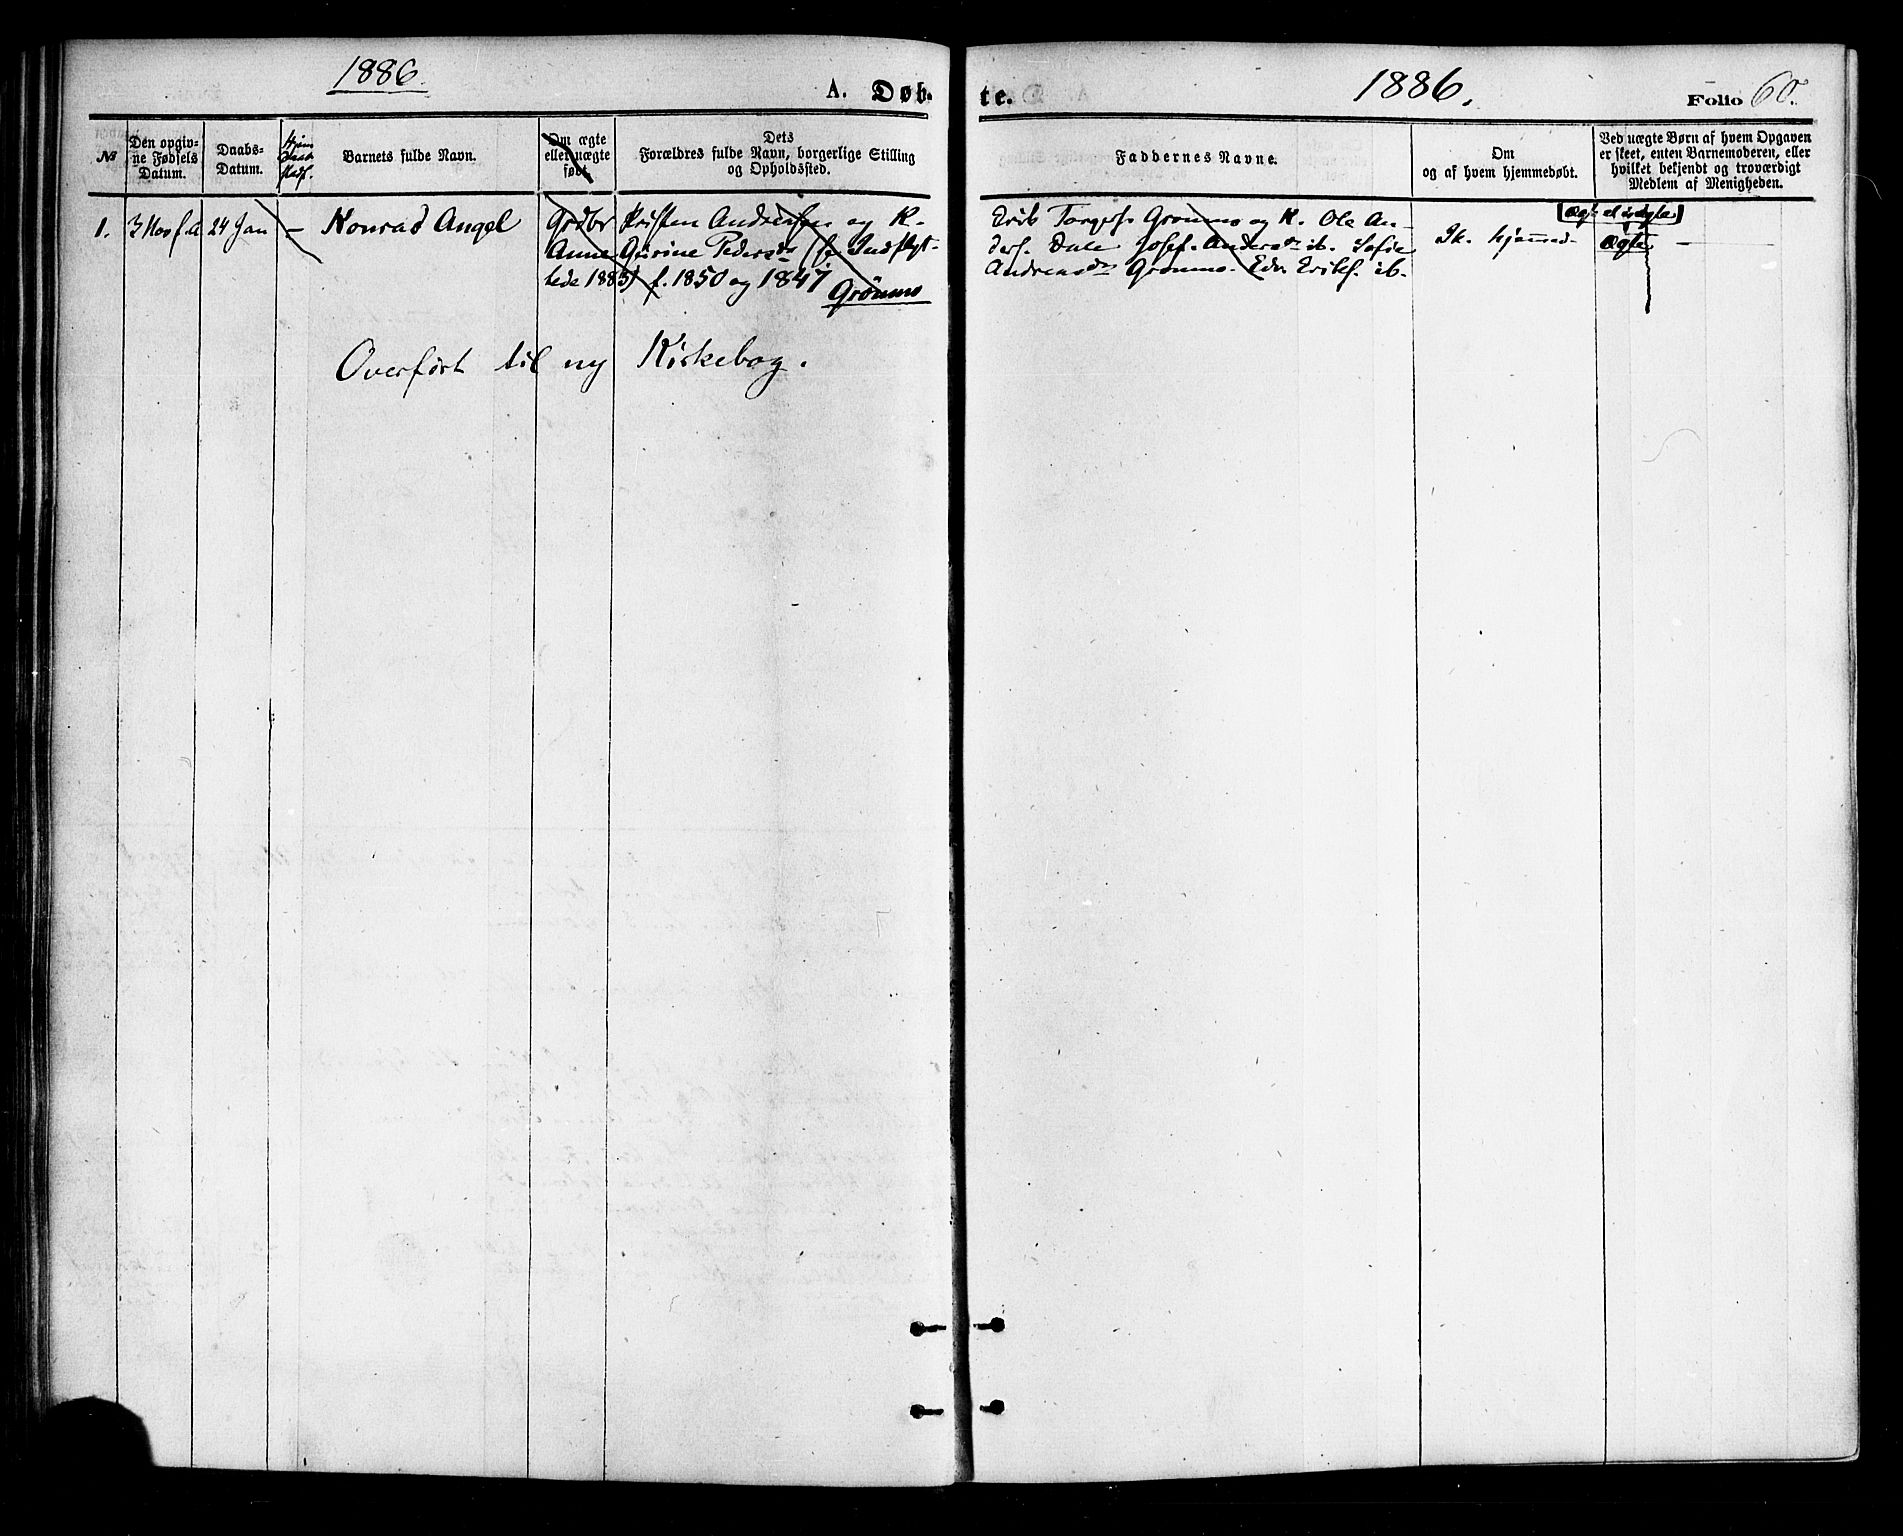 1886.
A. Døb-
te.
1886.
Folio 60.
№
Den opgiv-
ne Fødsels
Datum.
Daabs-
Datum.
Hjem
Barnets fulde Navn.
Om ægte
eller uægte
født.
Dets
Forældres fulde Navn, borgerlige Stilling
og Opholdssted.
Faddernes Navne.
Om
og af hvem hjemmedøbt.
Ved uægte Børn af hvem Opgaven
er skeet, enten Barnemoderen, eller
hvilket bekjendt og troværdigt
Medlem af Menigheden.
1.
3 Nov f A
24 Jan
-
Konrad Angel
Grdbr Kristen Andreassen og K.
Anne Gurine Pedersdr (f Indflyt-
tede 1885) f. 1850 og 1847
Grönmo
Erik Torgers. Grönmo og K. Ole An-
ders. Dale Josef. Andersdr ib. Sofie
Andreasdr Grönmo. Edv. Eriks. ib.
Ik. hjemmed.
[Ægte el uægte]
Ægte
Overført til ny Kirkebog.